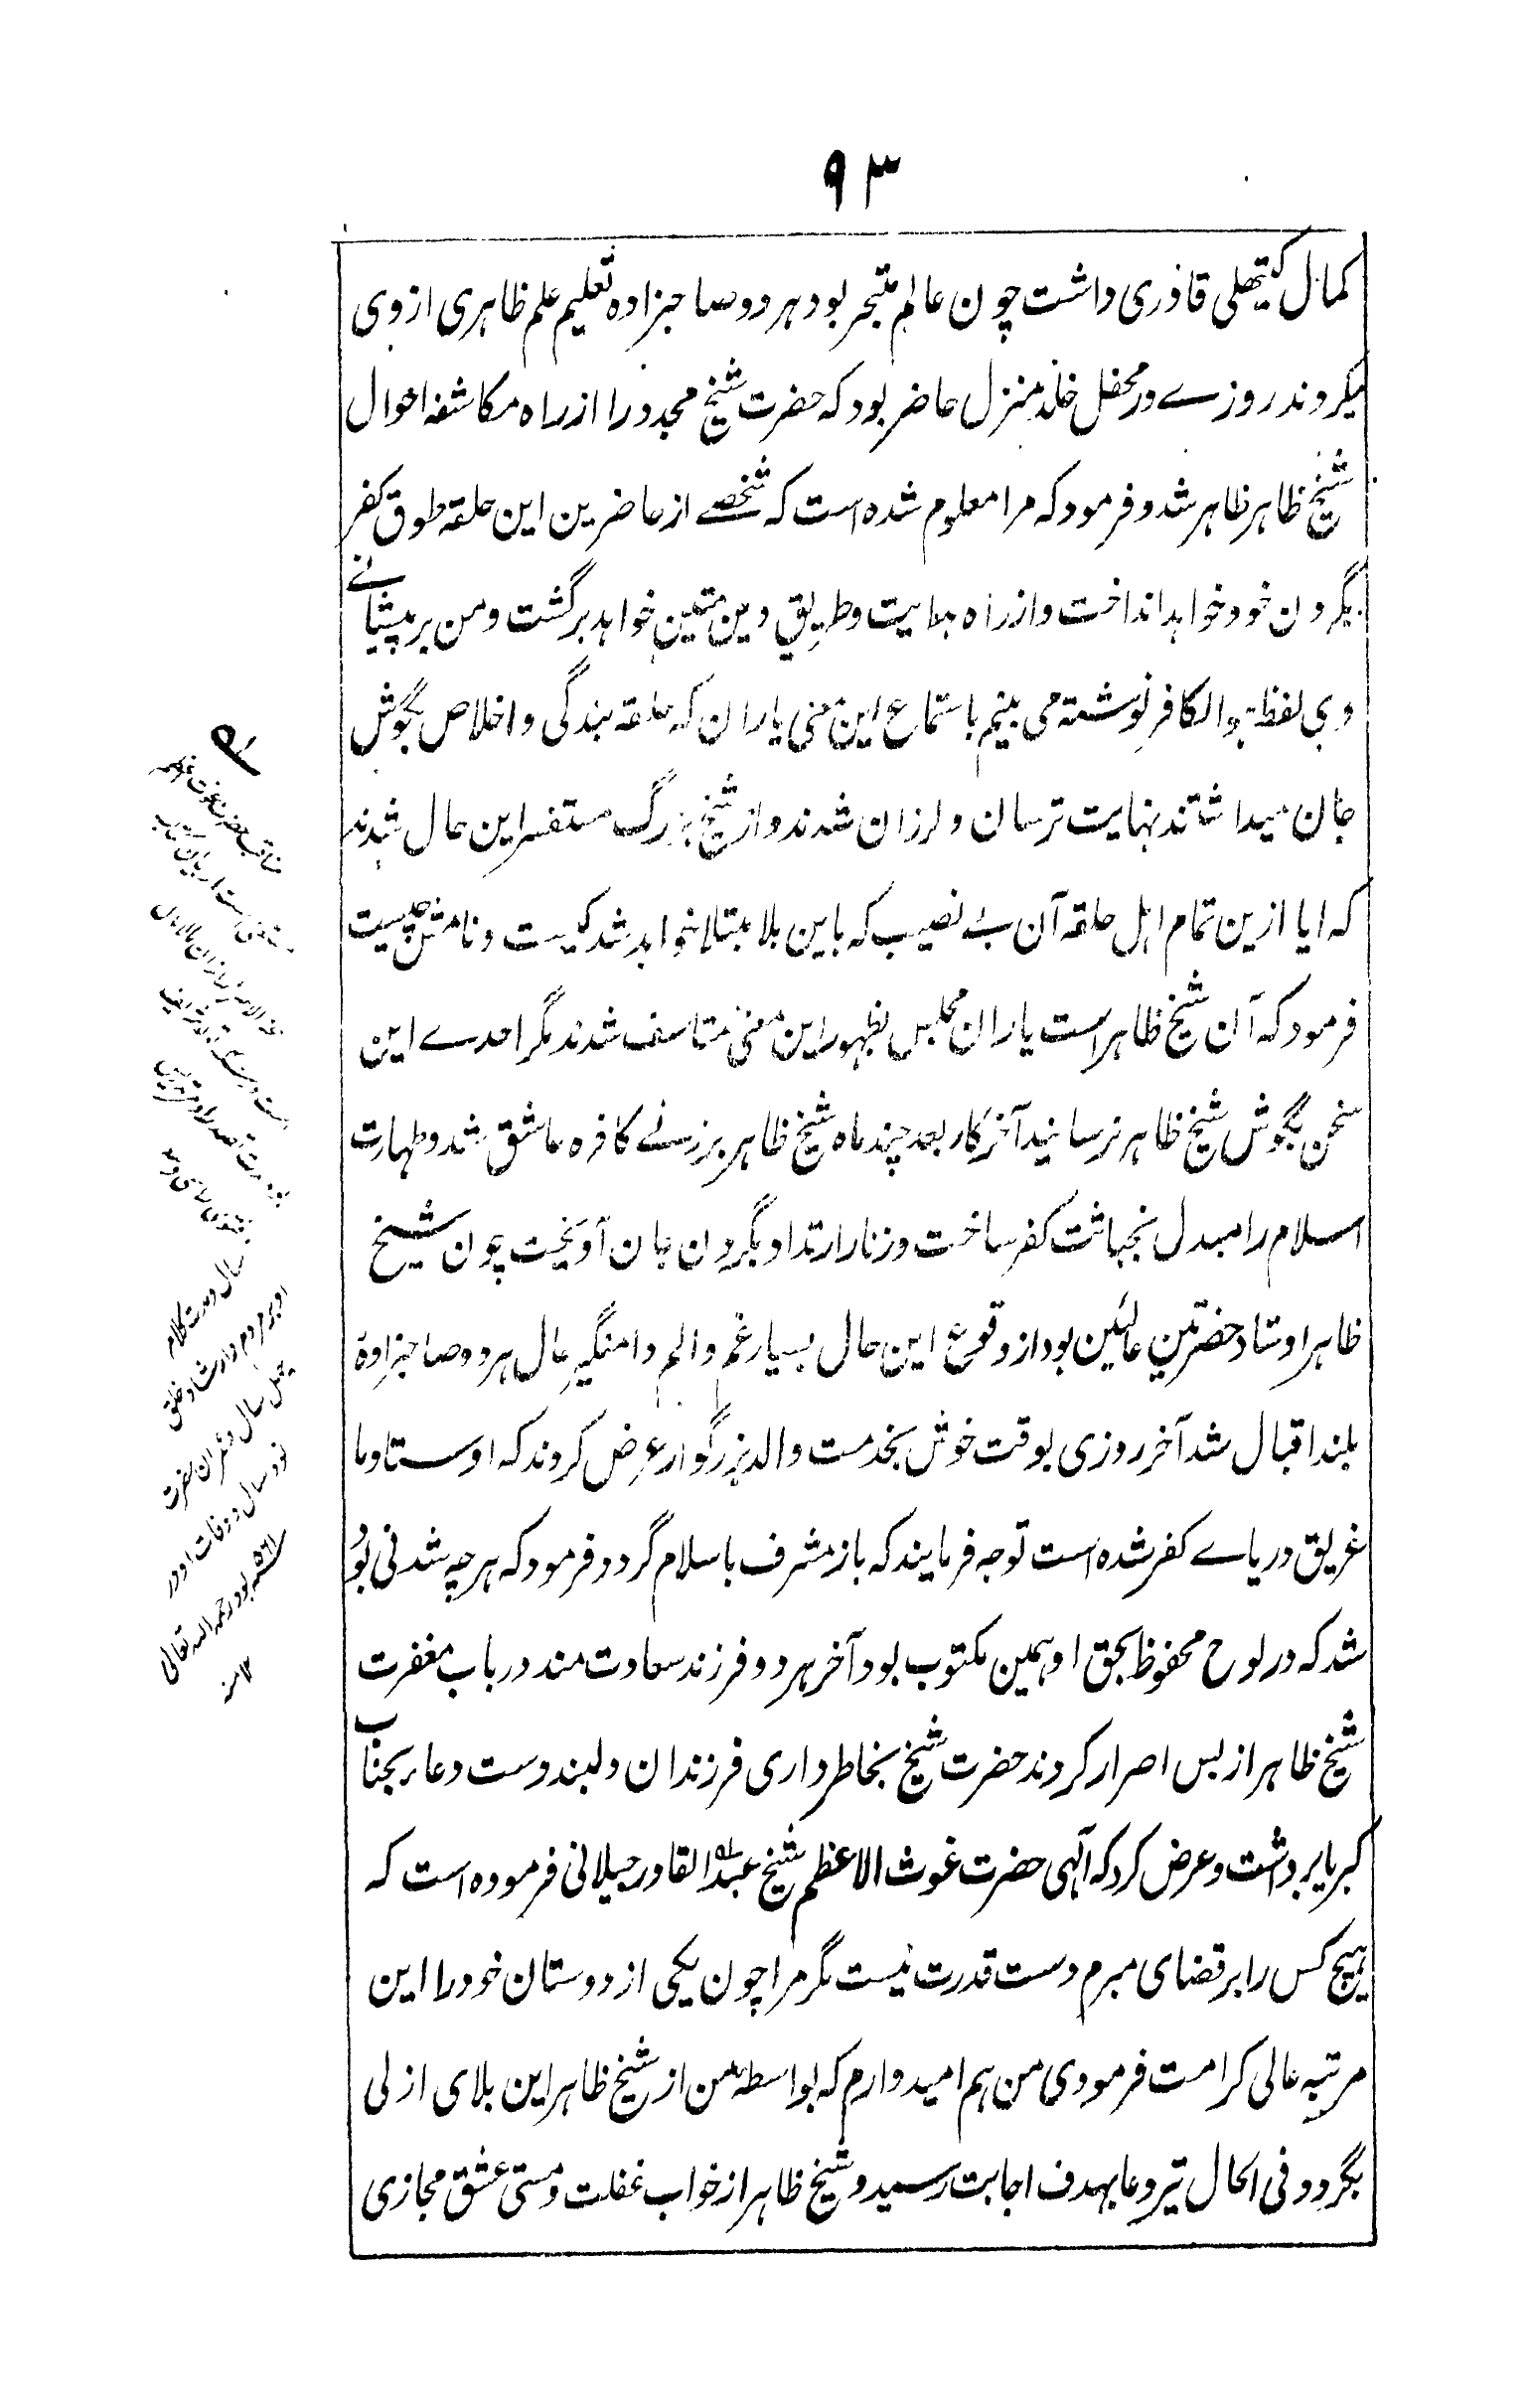 ۹۳
کمال کیتهلی قادری داشت چون عالم متبحر بود هر دو صاحبزاده تعلیم علم ظاهری از وی
میکردند روزے در محفل خلد منزل حاضر بود که حضرت شیخ مجدد را از راه مکاشفه احوال
شیخ طاهر ظاهر شد و فرمود که مرا معلوم شده است که شخصے از حاضرین این حلقه طوق کفر
بگردن خود خواهد انداخت و از راه هدایت و طریق دین متین خواهد برگشت و من بر پیشانے
وی لفظ هو الکافر نوشته می بینم باستماع این معنی یاران که حلقه بندگی و اخلاص بگوش
جان میداشتند نهایت ترسان و لرزان شدند و از شیخ بزرگ مستفسر این حال شدند
که ایا ازین تمام اهل حلقه آن بے نصیب که باین بلا مبتلا خواهد شد کیست و نامش چیست
فرمود که آن شیخ طاهر است یاران مجلس بظهور این معنی متاسف شدند مگر احدے این
سخن بگوش شیخ طاهر نرسانید آخر کار بعد چند ماه شیخ طاهر بر زنے کافره عاشق شد و طهارت
اسلام را مبدل بنجاثت کفر ساخت و زنار ارتداد بگردن جان آویخت چون شیخ
طاهر اوستاد حضرتین عالئین بود از وقوع این حال بسیار غم و الم دامنگیرِ حال هر دو صاحبزادهٔ
بلند اقبال شد آخر روزی بوقت خوش بخدمت والد بزرگوار عرض کردند که اوستاد ما
غریق دریاے کفر شده است توجه فرمایند که باز مشرف باسلام گردد فرمود که هر چه شدنی بُود
شد که در لوح محفوظ بحق او همین مکتوب بود آخر هر دو فرزند سعادت مند در باب مغفرت
شیخ طاهر از بس اصرار کردند حضرت شیخ بخاطر داری فرزندان دلبند دست دعاء بجناب
کبریا برداشت و عرض کرد که الٰهی حضرت غوث الاعظم شیخ عبدالقادر جیلانی فرموده است که
هیچ کس را بر قضای مبرم دست قدرت نیست مگر مرا چون یکی از دوستان خود را این
مرتبه عالی کرامت فرمودی من هم امیدوارم که بواسطه من از شیخ طاهر این بلای ازلی
بگردد فی الحال تیر دعا بهدف اجابت رسید و شیخ طاهر از خواب غفلت و مستی عشق مجازی
سال و مدت کلام
او بر مردم و ارشاد خلق
چهل سال و عمر آن حضرت
نود سال و وفات او در
سنه ۵۶۱ بود رحمة الله تعالی
۱۲ منه